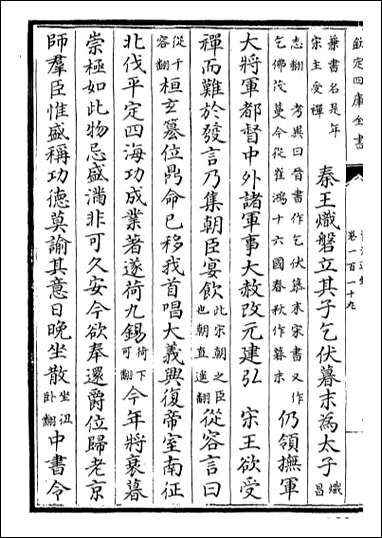 欽定四庫全書
卷一百一十九
兼書名是年宋主受禪 秦王熾磐立其子乞伏暮末為太子熾昌
志翻考異曰晉書作乞伏慕末宋書又作乞佛茂蔓今從崔鴻十六國春秋作暮末仍領撫軍
大將軍都督中外諸軍事大赦改元建弘 宋王欲受
禪而難於發言乃集朝臣宴飲此宋朝之臣也朝直遙翻從容言曰
從千容翻桓玄篡位鼎命已移我首唱大義興復帝室南征
北伐平定四海功成業著遂荷九錫荷下可翻今年將衰暮
崇極如此物忌盛滿非可久安今欲奉還爵位歸老京
師羣臣惟盛稱功德莫諭其意日晚坐散坐徂卧翻中書令